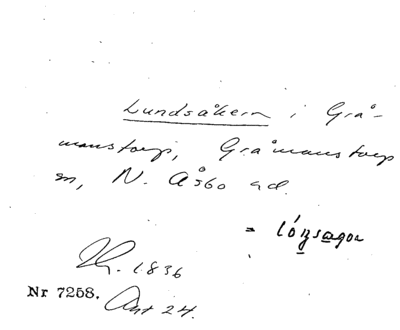 Lundsåkern i Grå-
manstorp, Gråmanstorp
sn, N. Åsbo hd.
= lóṇsagor
1836
Nr 7258. Art 24.